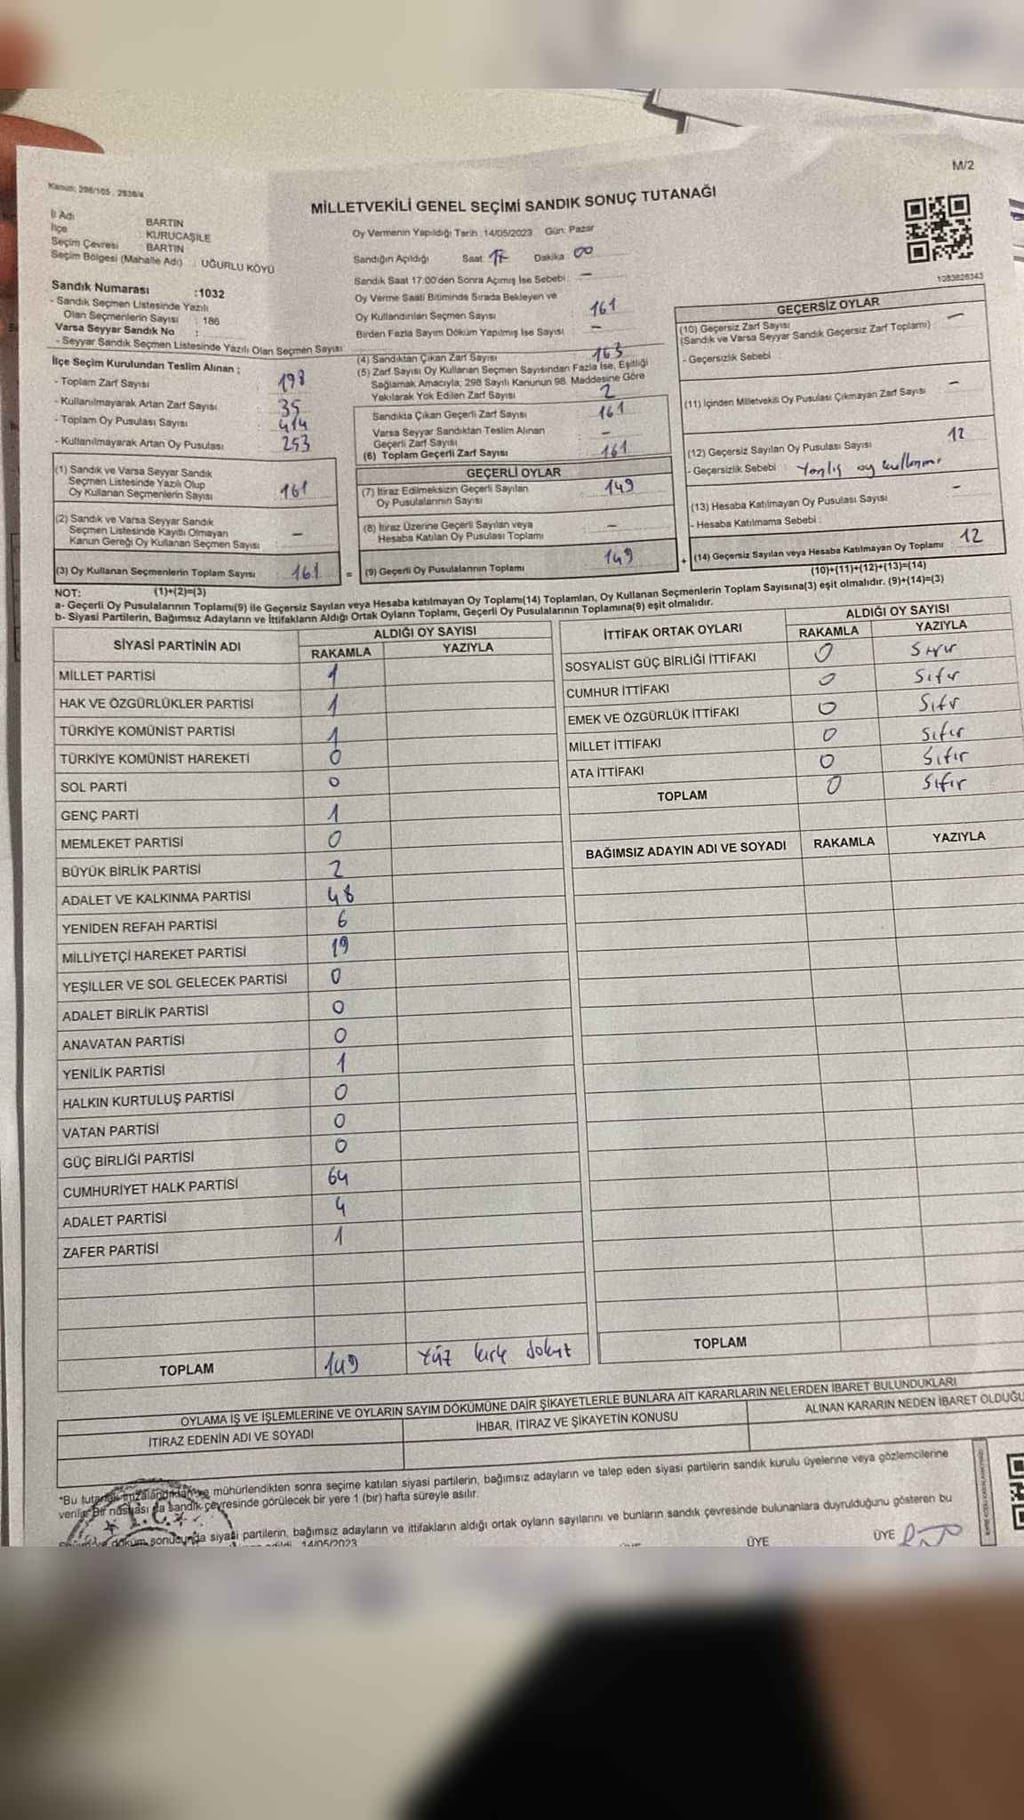 M/2
MİLLETVEKİLİ GENEL SEÇİMİ SANDIK SONUÇ TUTANAĞI
İl Adı BARTIN
İlçe : KURUCAŞİLE
Seçim Çevresi BARTIN
Seçim Bölgesi (Mahalle Adı) : UĞURLU KÖYÜ
Sandık Numarası :1032
- Sandık Seçmen Listesinde Yazılı
Olan Seçmenlerin Sayısı : 186
Varsa Seyyar Sandık No :
- Seyyar Sandık Seçmen Listesinde Yazılı Olan Seçmen Sayısı
Oy Vermenin Yapıldığı Tarih : 14/05/2023 Gün: Pazar
Sandığın Açıldığı Saat 17 Dakika 00
Sandık Saat 17:00'den Sonra Açımış İse Sebebi : —
Oy Verme Saati Bitiminde Sırada Bekleyen ve
Oy Kullandırılan Seçmen Sayısı 161
Birden Fazla Sayım Döküm Yapılmış İse Sayısı —
1083826343
İlçe Seçim Kurulundan Teslim Alınan :
- Toplam Zarf Sayısı 198
- Kullanılmayarak Artan Zarf Sayısı : 35
- Toplam Oy Pusulası Sayısı : 414
- Kullanılmayarak Artan Oy Pusulası : 253
(1) Sandık ve Varsa Seyyar Sandık
Seçmen Listesinde Yazılı Olup
Oy Kullanan Seçmenlerin Sayısı 161
(2) Sandık ve Varsa Seyyar Sandık
Seçmen Listesinde Kayıtlı Olmayan
Kanun Gereği Oy Kullanan Seçmen Sayısı —
(3) Oy Kullanan Seçmenlerin Toplam Sayısı 161 =
(1)+(2)=(3)
(4) Sandıktan Çıkan Zarf Sayısı 163
(5) Zarf Sayısı Oy Kullanan Seçmen Sayısından Fazla İse, Eşitliği
Sağlamak Amacıyla; 298 Sayılı Kanunun 98. Maddesine Göre
Yakılarak Yok Edilen Zarf Sayısı 2
Sandıkta Çıkan Geçerli Zarf Sayısı 161
Varsa Seyyar Sandıktan Teslim Alınan
Geçerli Zarf Sayısı —
(6) Toplam Geçerli Zarf Sayısı 161
GEÇERLİ OYLAR
(7) İtiraz Edilmeksizin Geçerli Sayılan
Oy Pusulalarının Sayısı 149
(8) İtiraz Üzerine Geçerli Sayılan veya
Hesaba Katılan Oy Pusulası Toplamı —
(9) Geçerli Oy Pusulalarının Toplamı 149 +
GEÇERSİZ OYLAR
(10) Geçersiz Zarf Sayısı
(Sandık ve Varsa Seyyar Sandık Geçersiz Zarf Toplamı) —
- Geçersizlik Sebebi
(11) İçinden Milletvekili Oy Pusulası Çıkmayan Zarf Sayısı —
(12) Geçersiz Sayılan Oy Pusulası Sayısı 12
- Geçersizlik Sebebi : Yanlış oy kullanımı
(13) Hesaba Katılmayan Oy Pusulası Sayısı —
- Hesaba Katılmama Sebebi :
(14) Geçersiz Sayılan veya Hesaba Katılmayan Oy Toplamı 12
(10)+(11)+(12)+(13)=(14)
NOT:
a- Geçerli Oy Pusulalarının Toplamı(9) ile Geçersiz Sayılan veya Hesaba katılmayan Oy Toplamı(14) Toplamları, Oy Kullanan Seçmenlerin Toplam Sayısına(3) eşit olmalıdır. (9)+(14)=(3)
b- Siyasi Partilerin, Bağımsız Adayların ve İttifakların Aldığı Ortak Oyların Toplamı, Geçerli Oy Pusulalarının Toplamına(9) eşit olmalıdır.
SİYASİ PARTİNİN ADI ALDIĞI OY SAYISI
RAKAMLA YAZIYLA
MİLLET PARTİSİ 1
HAK VE ÖZGÜRLÜKLER PARTİSİ 1
TÜRKİYE KOMÜNİST PARTİSİ 1
TÜRKİYE KOMÜNİST HAREKETİ 0
SOL PARTİ 0
GENÇ PARTİ 1
MEMLEKET PARTİSİ 0
BÜYÜK BİRLİK PARTİSİ 2
ADALET VE KALKINMA PARTİSİ 48
YENİDEN REFAH PARTİSİ 6
MİLLİYETÇİ HAREKET PARTİSİ 19
YEŞİLLER VE SOL GELECEK PARTİSİ 0
ADALET BİRLİK PARTİSİ 0
ANAVATAN PARTİSİ 0
YENİLİK PARTİSİ 1
HALKIN KURTULUŞ PARTİSİ 0
VATAN PARTİSİ 0
GÜÇ BİRLİĞİ PARTİSİ 0
CUMHURİYET HALK PARTİSİ 64
ADALET PARTİSİ 4
ZAFER PARTİSİ 1
TOPLAM 149 Yüz kırk dokuz
İTTİFAK ORTAK OYLARI ALDIĞI OY SAYISI
RAKAMLA YAZIYLA
SOSYALİST GÜÇ BİRLİĞİ İTTİFAKI 0 Sıfır
CUMHUR İTTİFAKI 0 Sıfır
EMEK VE ÖZGÜRLÜK İTTİFAKI 0 Sıfır
MİLLET İTTİFAKI 0 Sıfır
ATA İTTİFAKI 0 Sıfır
TOPLAM 0 Sıfır
BAĞIMSIZ ADAYIN ADI VE SOYADI RAKAMLA YAZIYLA
TOPLAM
OYLAMA İŞ VE İŞLEMLERİNE VE OYLARIN SAYIM DÖKÜMÜNE DAİR ŞİKAYETLERLE BUNLARA AİT KARARLARIN NELERDEN İBARET BULUNDUKLARI
İTİRAZ EDENİN ADI VE SOYADI İHBAR, İTİRAZ VE ŞİKAYETİN KONUSU ALINAN KARARIN NEDEN İBARET OLDUĞU
*Bu tutanak mühürlendikten sonra seçime katılan siyasi partilerin, bağımsız adayların ve talep eden siyasi partilerin sandık kurulu üyelerine veya gözlemcilerine
verilir. Bir nüshası da sandık çevresinde görülecek bir yere 1 (bir) hafta süreyle asılır.
T.C.
döküm sonucunda siyasi partilerin, bağımsız adayların ve ittifakların aldığı ortak oyların sayılarını ve bunların sandık çevresinde bulunanlara duyrulduğunu gösteren bu
14/05/2023
ÜYE ÜYE